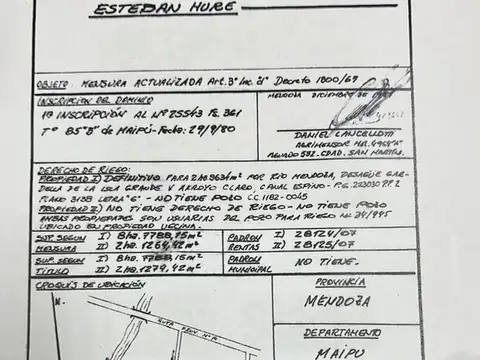 ESTEBAN HURE
OBJETO: MENSURA ACTUALIZADA Art. 3º Inc. "d" Decreto 1800/67
INSCRIPCION DEL DOMINIO
1º INSCRIPCIÓN AL Nº 25543 Fs. 361
Tº 85 "B" de MAIPÚ - Fecha: 29/9/80
MENDOZA DICIEMBRE DE
DANIEL CANCELLOTTI
AGRIMENSOR MAT.
SAN MARTIN.
DERECHO DE RIEGO:
PROPIEDAD I) DEFINITIVO PARA 2 HA 8634 m² POR RÍO MENDOZA, DESAGÜE
DE LA ISLA GRANDE Y ARROYO CLARO, CANAL ESPINO - P.G. 223030 P.P. 2
PLANO 3138 LETRA "G" - NO TIENE POZO CC 1182-0045
PROPIEDAD II) NO TIENE DERECHO DE RIEGO - NO TIENE POZO
AMBAS PROPIEDADES SON USUARIAS DEL POZO PARA RIEGO Nº 34/995
UBICADO EN PROPIEDAD VECINA.
SUP. SEGUN I) 8 ha. 7788,15 m² PADRON I) 28124/07
MENSURA II) 2 ha. 1264,42 m² RENTAS II) 28125/07
SUP. SEGUN I) 8 ha. 7788,15 m² PADRON
TÍTULO II) 2 ha. 1279,42 m² MUNICIPAL NO TIENE.
CROQUIS DE UBICACIÓN
PROVINCIA
N.
MENDOZA
RUTA PROV. Nº
DEPARTAMENTO
MAIPU